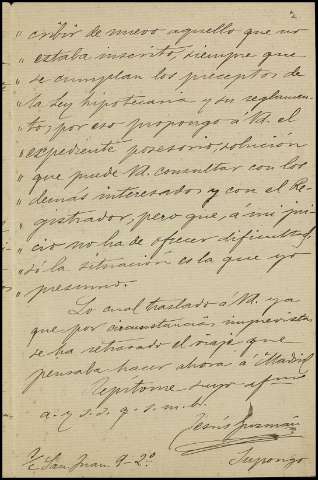 2
" cribir de nuevo aquello que no
" estaba inscrito, siempre que
" se cumplan los preceptos de
" la Ley hipotecaria y su reglamen-
" to; por eso propongo á Vd. el
" expediente posesorio, solución
" que puede Vd. consultar con los
" demás interesados y con el Re-
" gistrador, pero que, á mi jui-
" cio no ha de ofrecer dificultad,
" si la situación es la que yo
" presumo.
Lo cual traslado á Vd. ya
que por circunstancias imprevistas
se ha retrasado el viaje que
pensaba hacer ahora á Madrid
Repítome suyo afmo
a. y s. s. q. s. m. b.
Jesús Guzmán
S/c San Juan 9-2º
Supongo